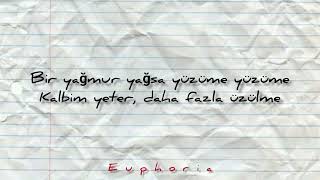 Bir yağmur yağsa yüzüme yüzüme
Kalbim yeter, daha fazla üzülme
Euphoria